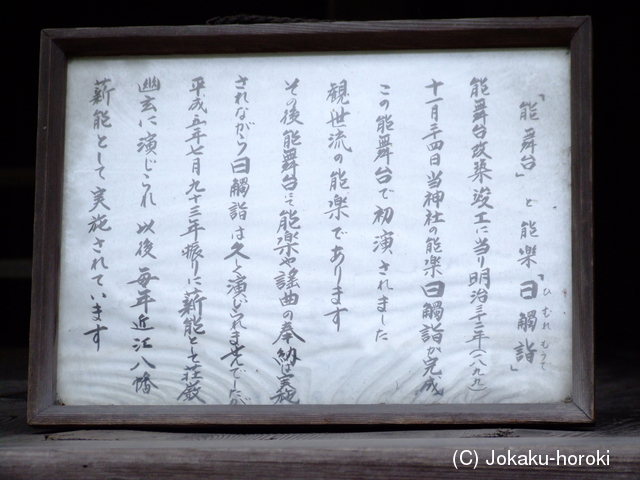 「能舞台」と能楽「日觸詣」
ひむれもうで
能舞台改築竣工に当り明治三十二年(一八九九)
十一月三、四日当神社の能楽日觸詣が完成
この能舞台で初演されました
観世流の能楽であります
その後能舞台にて能楽や謡曲の奉納は実施
されながら日觸詣は久く演じられませんでしたが
平成五年七月九十三年振りに薪能として荘厳
幽玄に演じられ以後毎年近江八幡
薪能として実施されています
(C) Jokaku-horoki